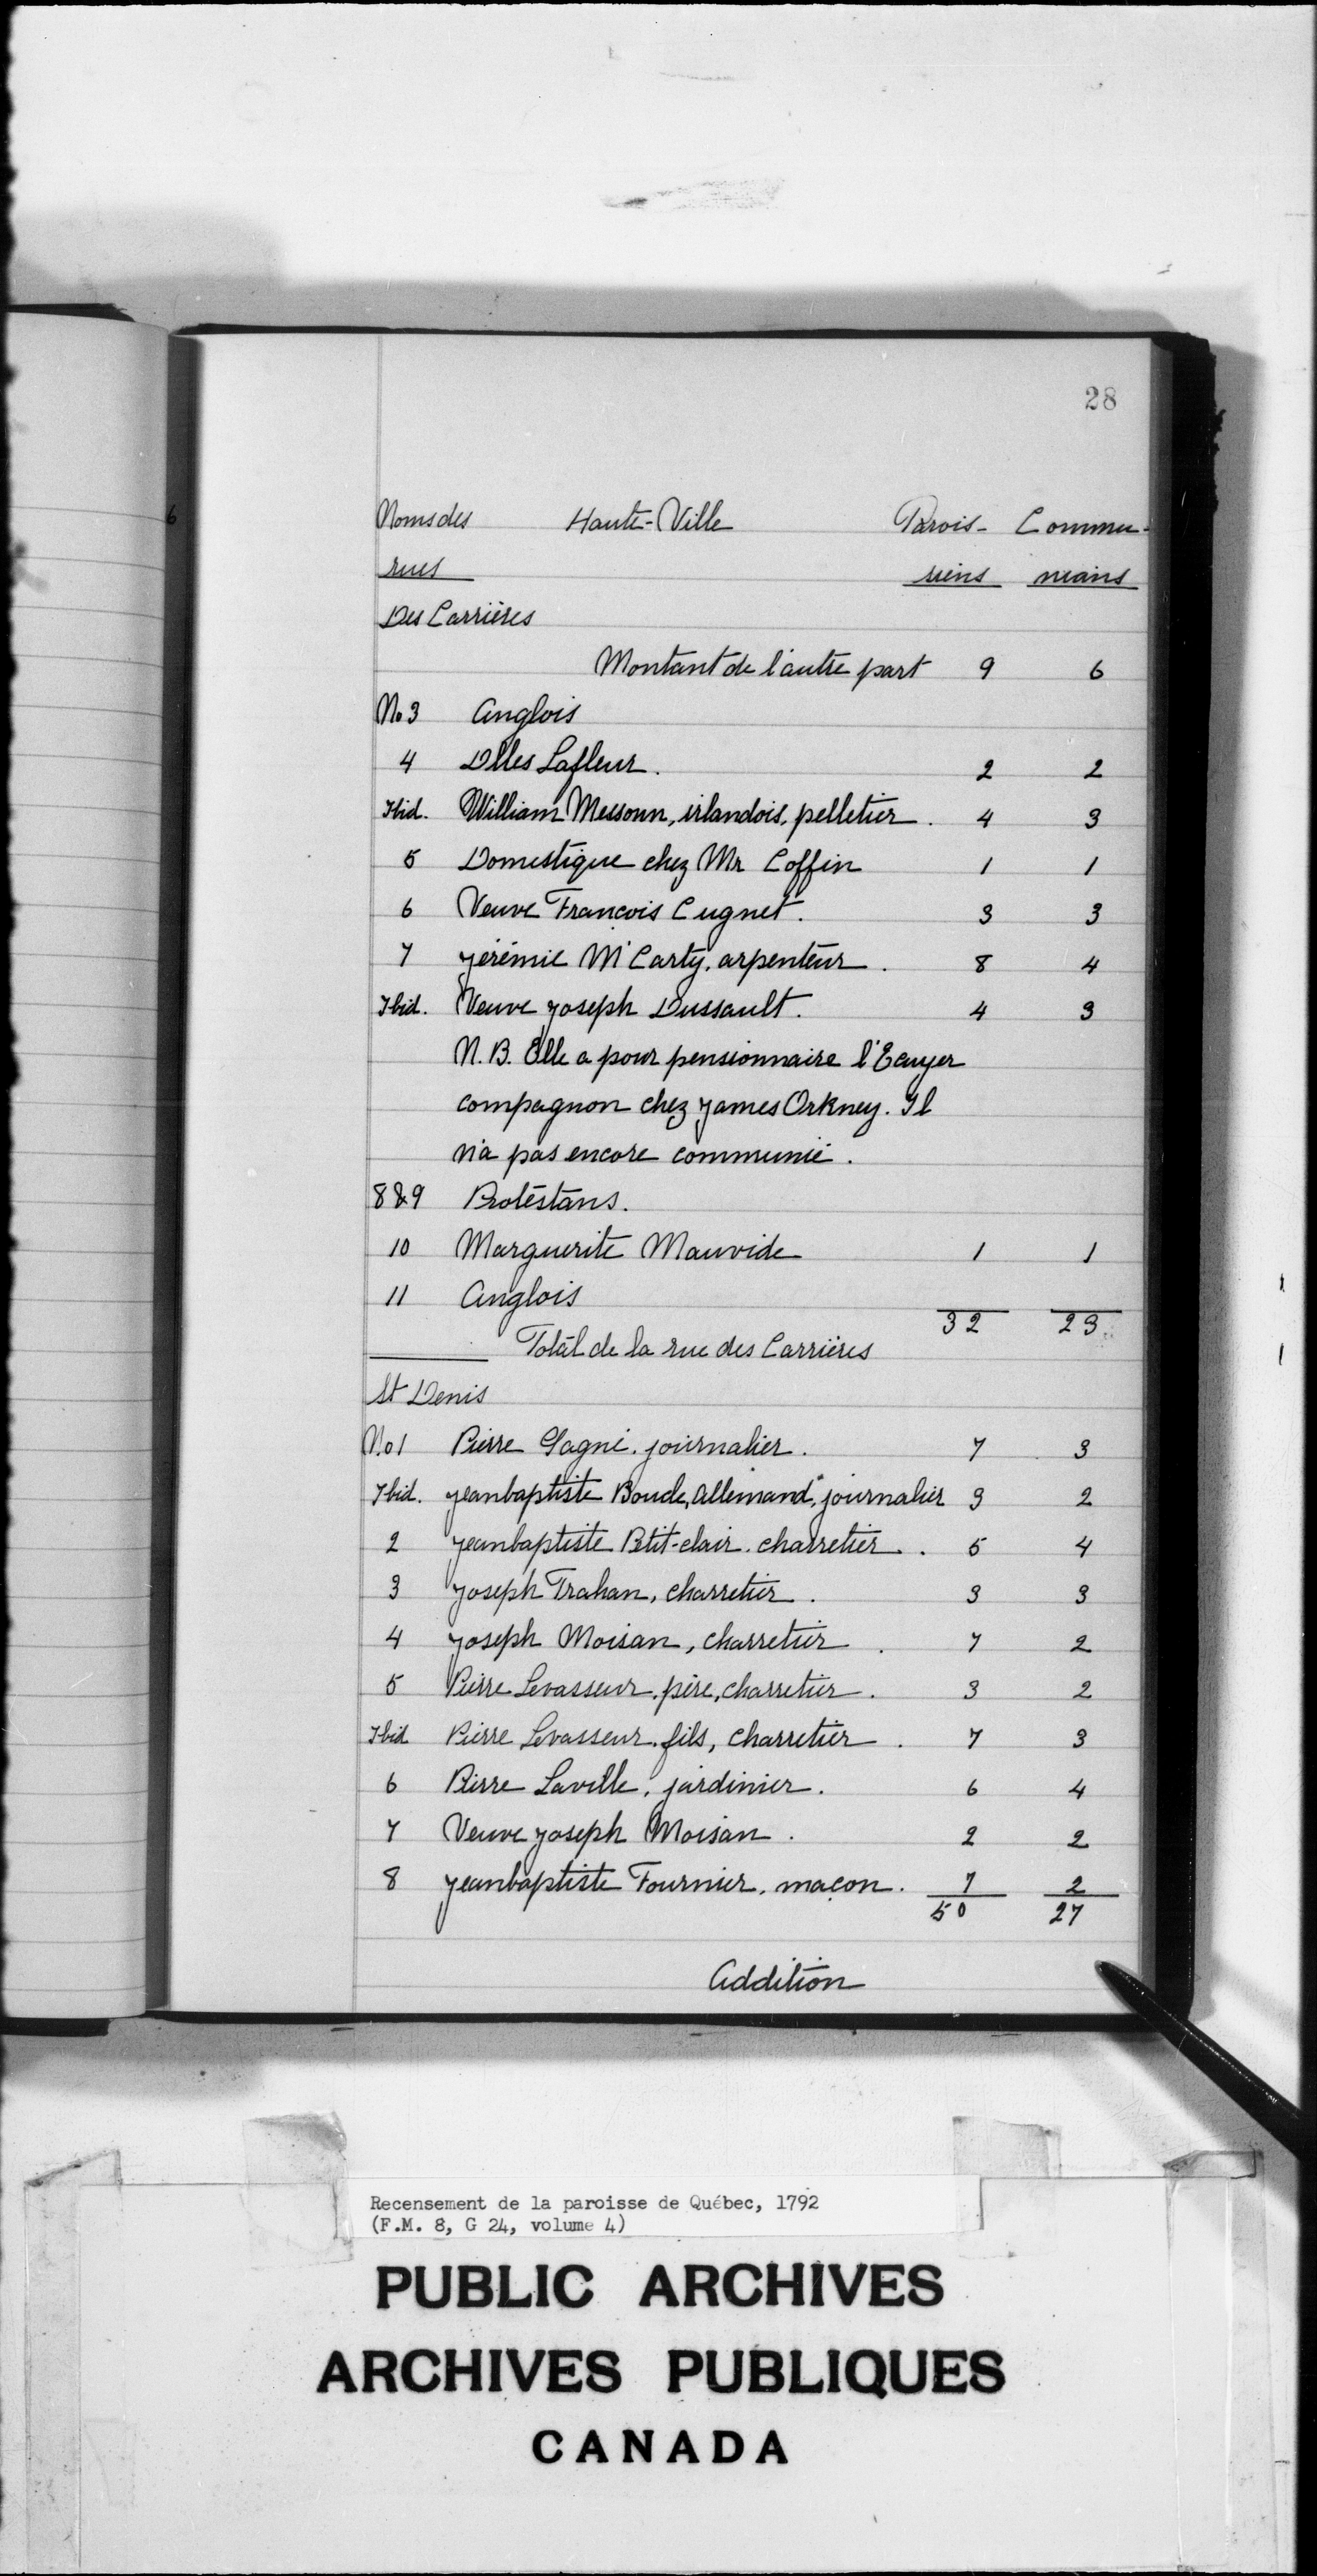 28
Noms des Haute-Ville Parois- Commu-
rues siens nians
Des Carrières
Montant de l'autre part 9 6
No 3 Anglois
4 Dlles Lafleur. 2 2
Ibid. William Messoun, irlandois, pelletier. 4 3
5 Domestique chez Mr Coffin 1 1
6 Veuve François Cugnet. 3 3
7 Jérémie McCarty, arpenteur. 8 4
Ibid. Veuve Joseph Dussault. 4 3
N.B. Elle a pour pensionnaire l'Ecuyer
compagnon chez James Orkney. Il
n'a pas encore communié.
8 & 9 Protestans.
10 Marguerite Mauvide 1 1
11 Anglois
32 23
Total de la rue des Carrières
St Denis
No 1 Pierre Gagné, journalier. 7 3
Ibid. Jeanbaptiste Boucle, Allemand, journalier 3 2
2 Jeanbaptiste Petit-clair, charretier. 5 4
3 Joseph Trahan, charretier. 3 3
4 Joseph Moisan, charretier. 7 2
5 Pierre Levasseur, père, charretier. 3 2
Ibid Pierre Levasseur, fils, charretier. 7 3
6 Pierre Laville, jardinier. 6 4
7 Veuve Joseph Moisan. 2 2
8 Jeanbaptiste Fournier, maçon. 7 2
50 27
Addition
6
Recensement de la paroisse de Québec, 1792
(F.M. 8, G 24, volume 4)
PUBLIC ARCHIVES
ARCHIVES PUBLIQUES
CANADA